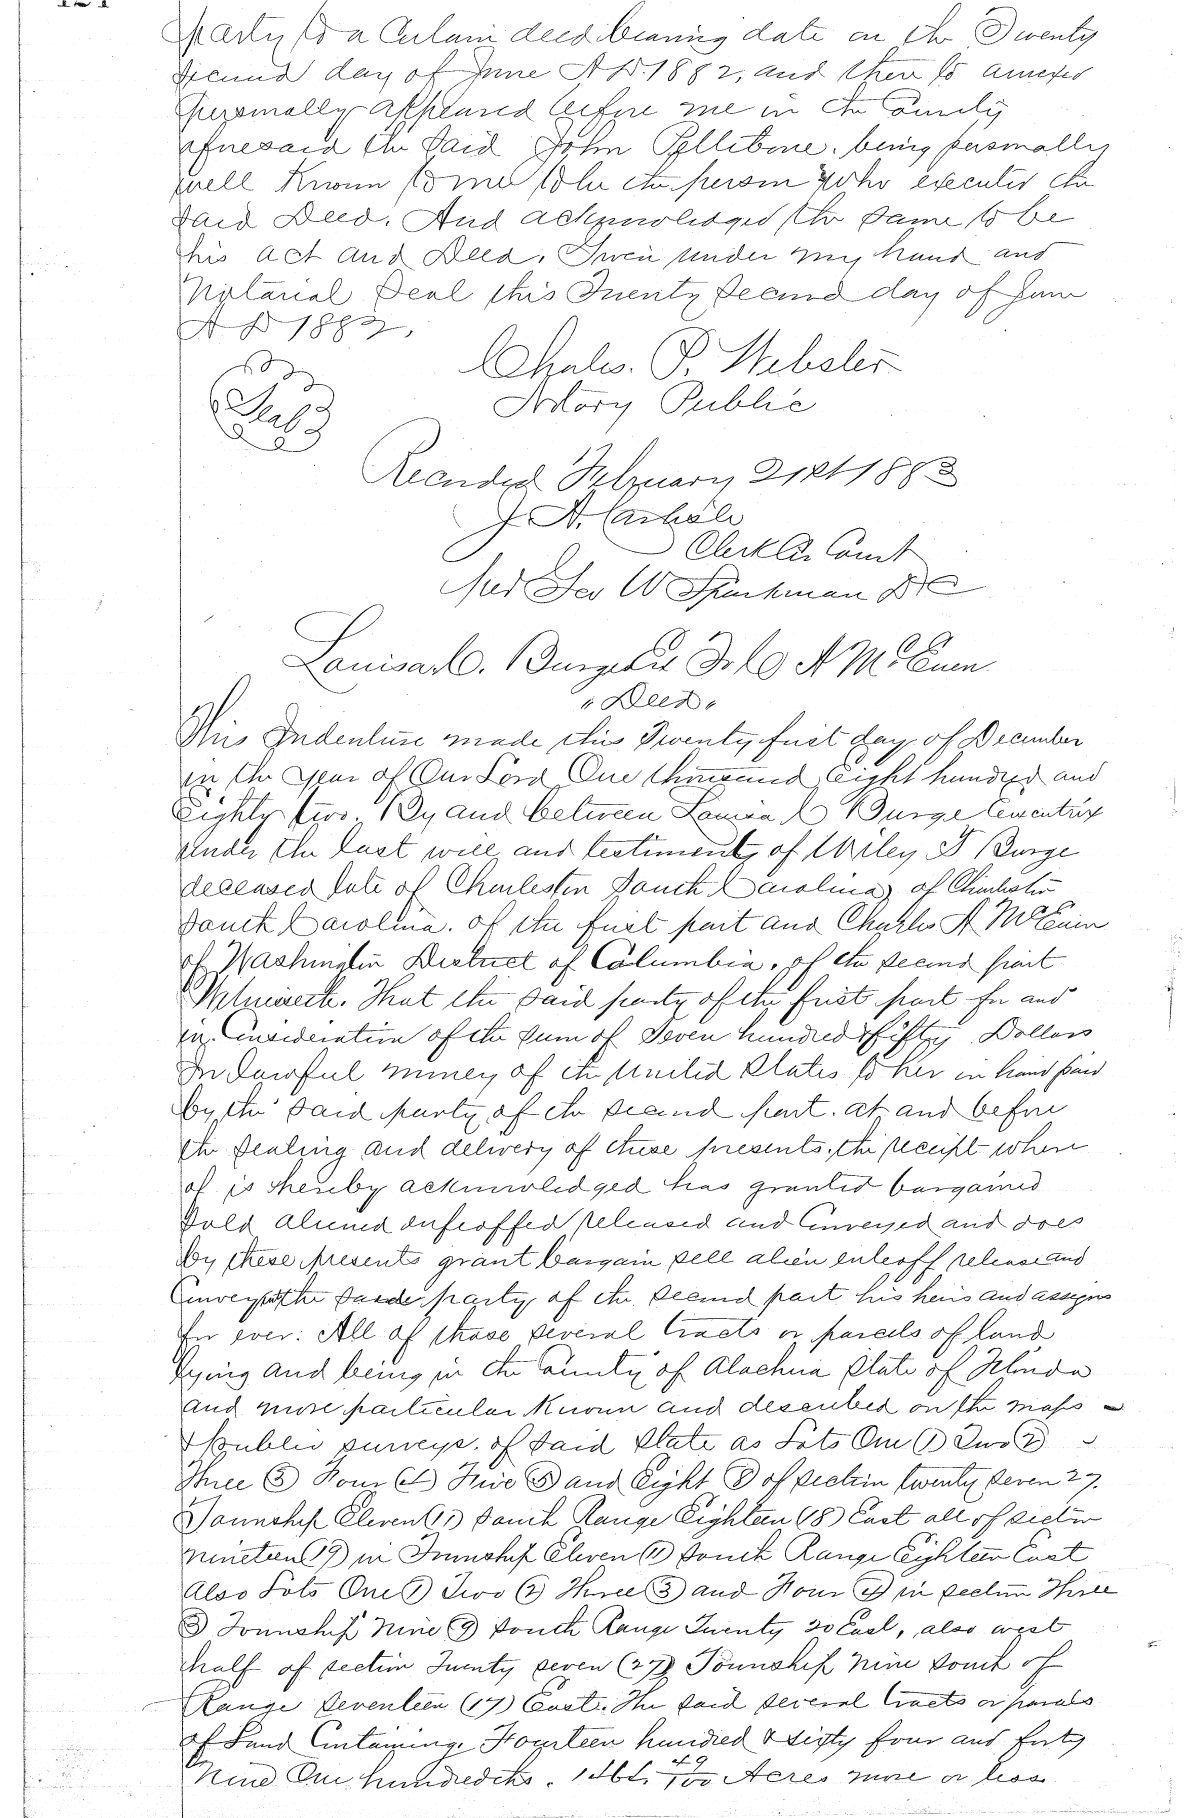 party to a Certain deed bearing date on the Twenty
Second day of June A.D. 1882, and there to annexed
personally appeared before me in the County
aforesaid the Said John Pettibone, being personally
well Known to me to be the person who executed the
Said Deed. And acknowledged the same to be
his act and Deed. Given under my hand and
Notarial Seal this Twenty Second day of June
A D 1882.
Seal
Charles. P. Webster
Notary Public
Recorded February 21st 1883
J. A. Carlisle
Clerk Cir Court
Per Geo W Sparkman D C
Louisa C. Burge Ex To C A McEuen
" Deed "
This Indenture made this Twenty first day of December
in the year of Our Lord One thousand Eight hundred and
Eighty two. By and between Louisa C Burge Executrix
under the last will and testiment of Wiley T Burge
deceased late of Charleston South Carolina, of Charleston
South Carolina. of the first part and Charles A McEuen
of Washington District of Columbia. of the second part
Witnesseth. That the said party of the first part for and
in Consideration of the sum of Seven hundred & Fifty Dollars
In lawful money of the United States to her in hand paid
by the said party of the second part. at and before
the sealing and delivery of these presents, the receipt where
of is hereby acknowledged has granted bargained
Sold aliened enfeoffed released and Conveyed and does
by these presents grant bargain sell alien enfeoff release and
Convey to the party of the second part his heirs and assigns
for ever: All of those several tracts or parcels of land
lying and being in the County of Alachua State of Florida
and more particular Known and described on the maps
& Public surveys. of Said State as Lots One (1) Two (2)
Three (3) Four (4) Five (5) and Eight (8) of section twenty seven 27.
Township Eleven (11) South Range Eighteen (18) East all of section
nineteen (19) in Township Eleven (11) South Range Eighteen East
Also Lots One (1) Two (2) Three (3) and Four (4) in section Three
(3) Township Nine (9) South Range Twenty 20 East, also west
half of section Twenty seven (27) Township Nine South of
Range Seventeen (17) East. The said several tracts or parcels
of Land Containing. Fourteen hundred & sixty four and forty
Nine One hundredths. 1464. 49/100 Acres more or less